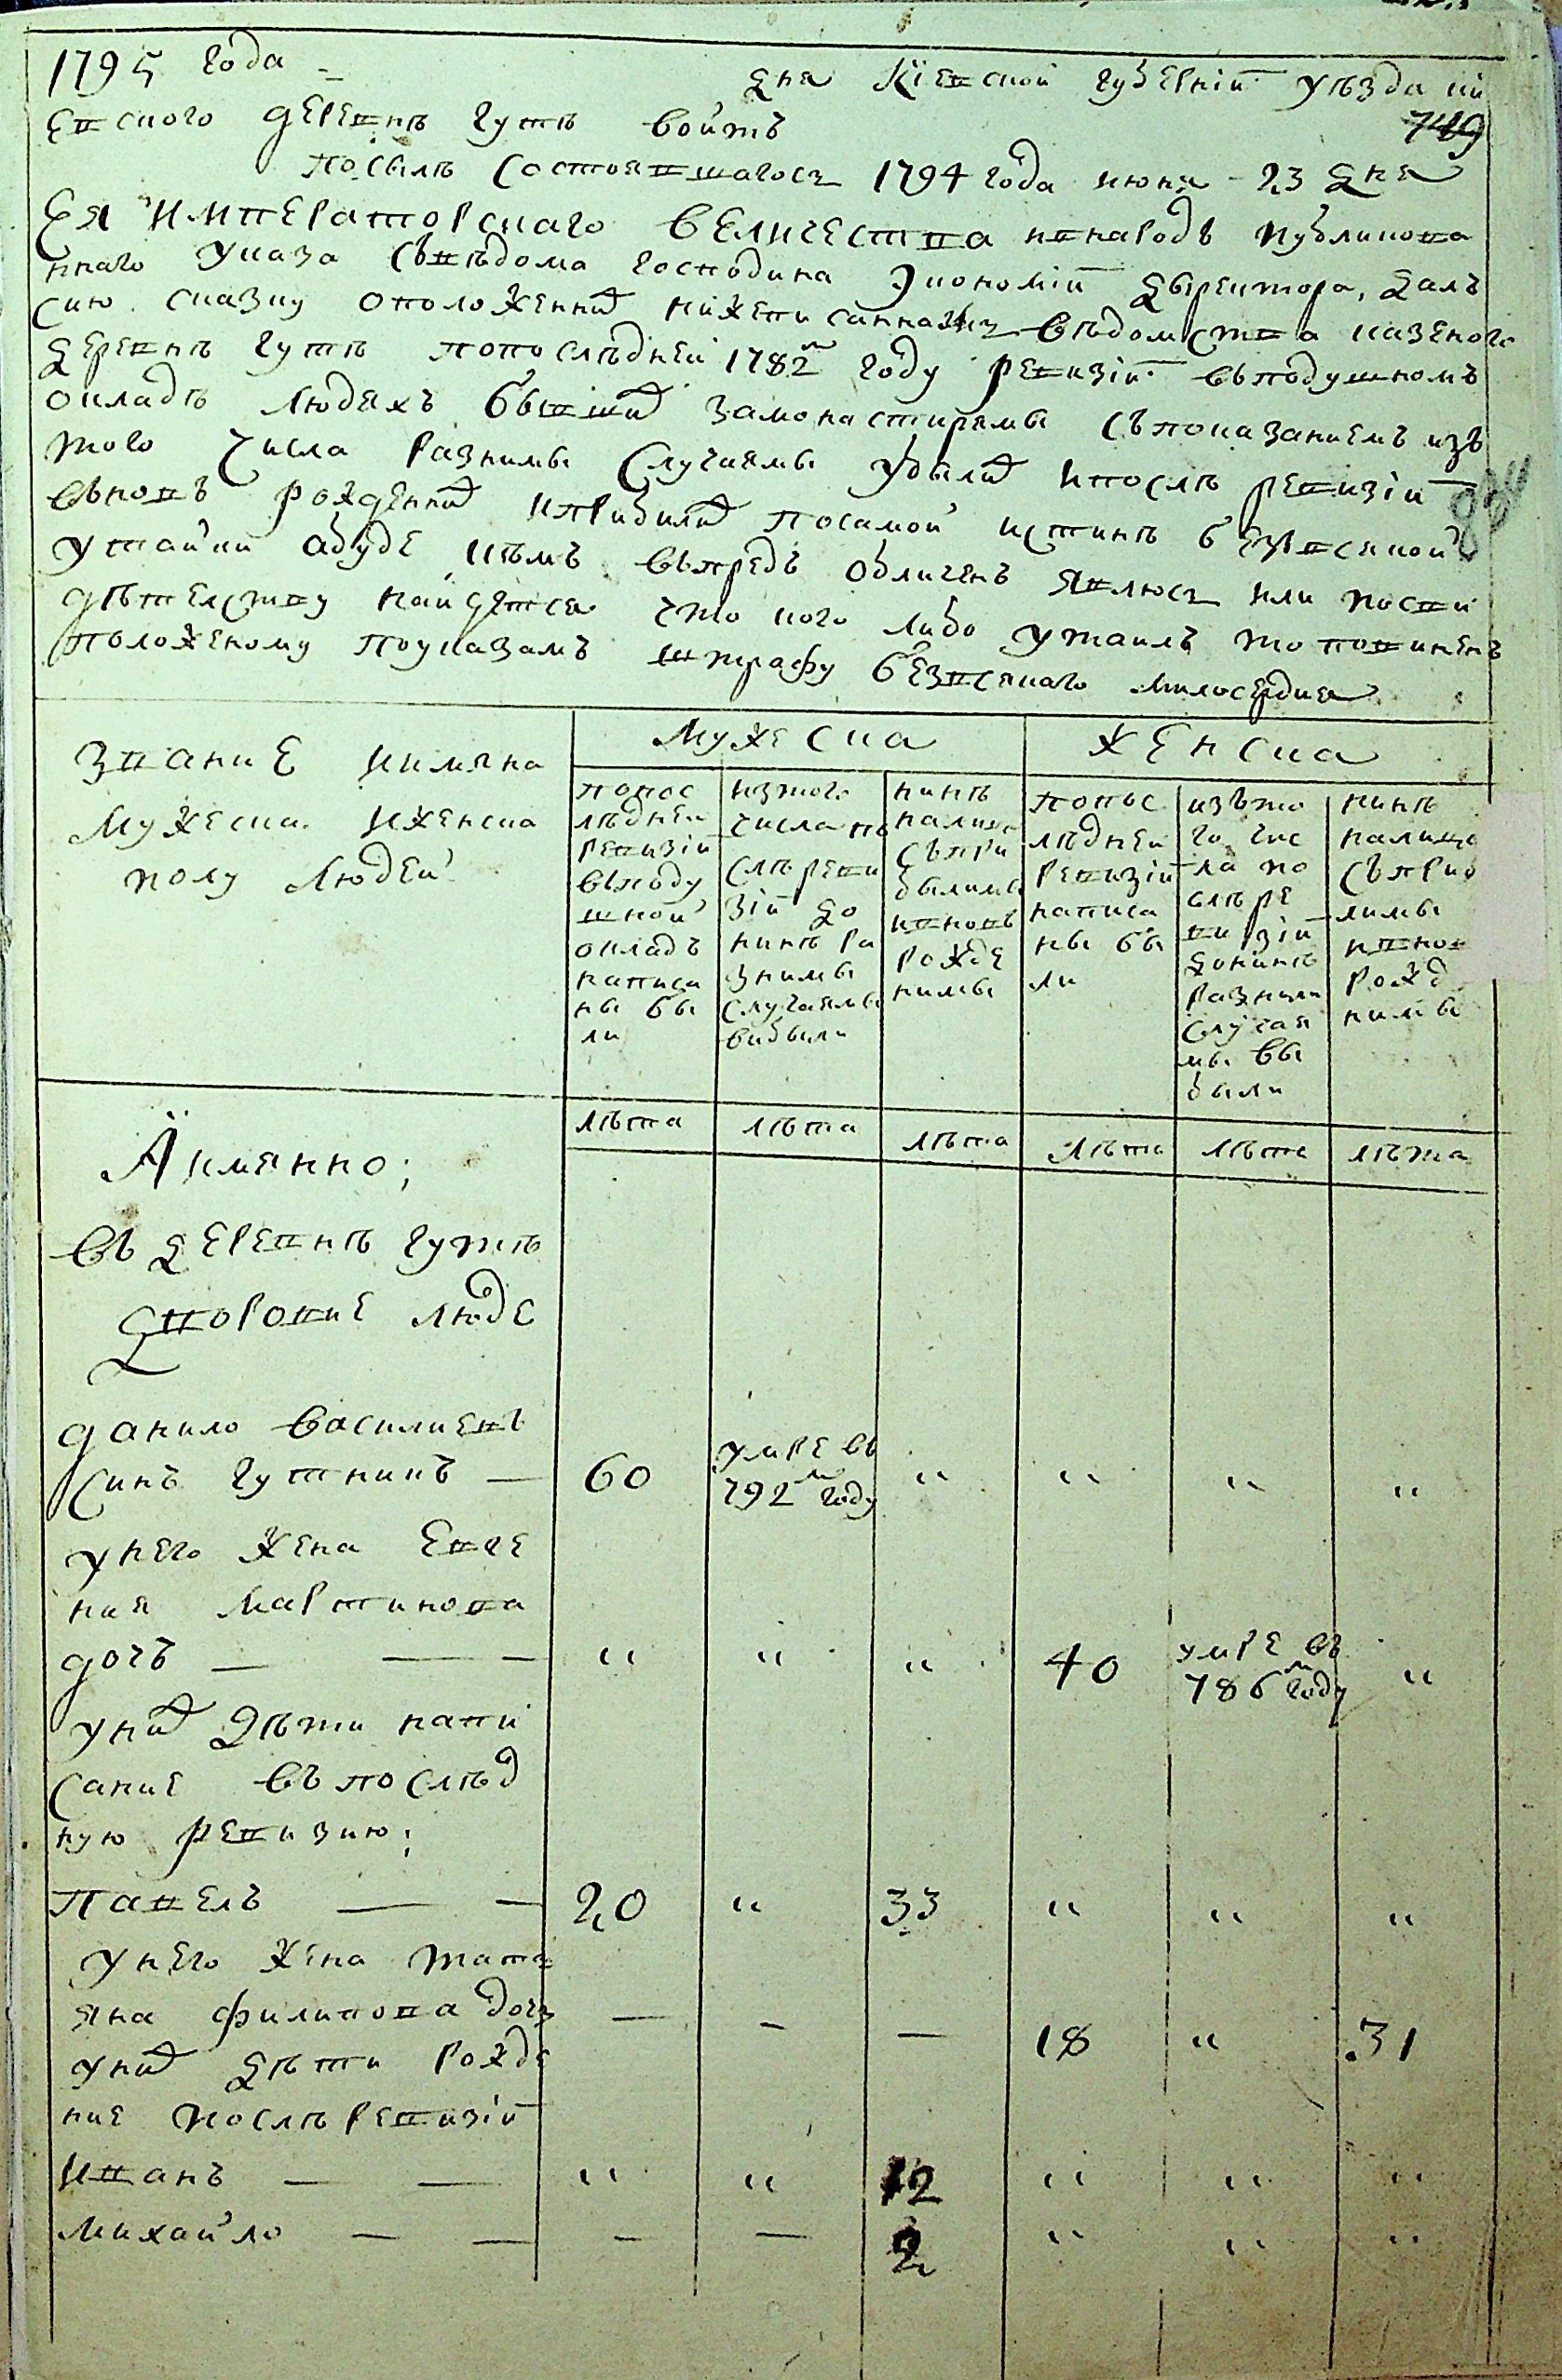 1795 года – дня Кіевской губерніи уезда кі
749
евского деревнѣ гутѣ войтъ
посылѣ состоявшагось 1794 года июня 23 дня
Ея императорскаго величества внародъ публикова
ннаго указа съвѣдома господина экономіи дыректора, далъ
сию сказку оположенних нижеписанная ведомства казеного
деревнѣ гутѣ попослѣдней 1782м году ревизіи въподушномъ
окладѣ людяхъ бывших замонастирямы съпоказаниемъ изъ
того числа разнимы случаямы убылих ипослѣ ревизіи
въновъ рожденних иприбилих посамой истинѣ безвсякой
утайки абуде кѣмъ въпредъ обличенъ явлюсь или посви
дѣтелству найдется что кого либо утаилъ то повиненъ
положеному поуказамъ штрафу безвсякаго милосердия
звание иимяна
мужеска иженска
полу людей
мужеска
женска
попос
лѣдней
ревизіи
въподу
шной
окладъ
написа
ны бы
ли
изтого
числа по
слѣ реви
зіи до
нинѣ ра
знимы
случаямы
вибыли
нинѣ
налицо
съпри
былимы
ивновъ
рожде
нимы
попос
лѣдней
ревизіи
написа
ны бы
ли
изъто
го чис
ла по
слѣ ре
визіи
донинѣ
разними
случая
мы вы
были
нинѣ
налицо
съприб
лимы
ивнов
рожд
нимы
лѣта лѣта лѣта лѣта лѣта лѣта
Аимянно;
въ деревнѣ гутѣ
дворовие люде
данило василиевъ
синъ гутникъ — 60 умре въ 792м году " " " "
унего жена Евге
ния мартинова
дочъ — — — " " " 40 умре въ 786м году "
уних дѣти напи
сание въ послѣд
ную ревизию;
павелъ — — 20 " 33 " " "
унего жена татъ
яна филипова дочь — – — 18 " 31
уних дѣти рожде
ние послѣ ревизіи
иванъ — — " " 12 " " "
михайло — — – — 2 " " "